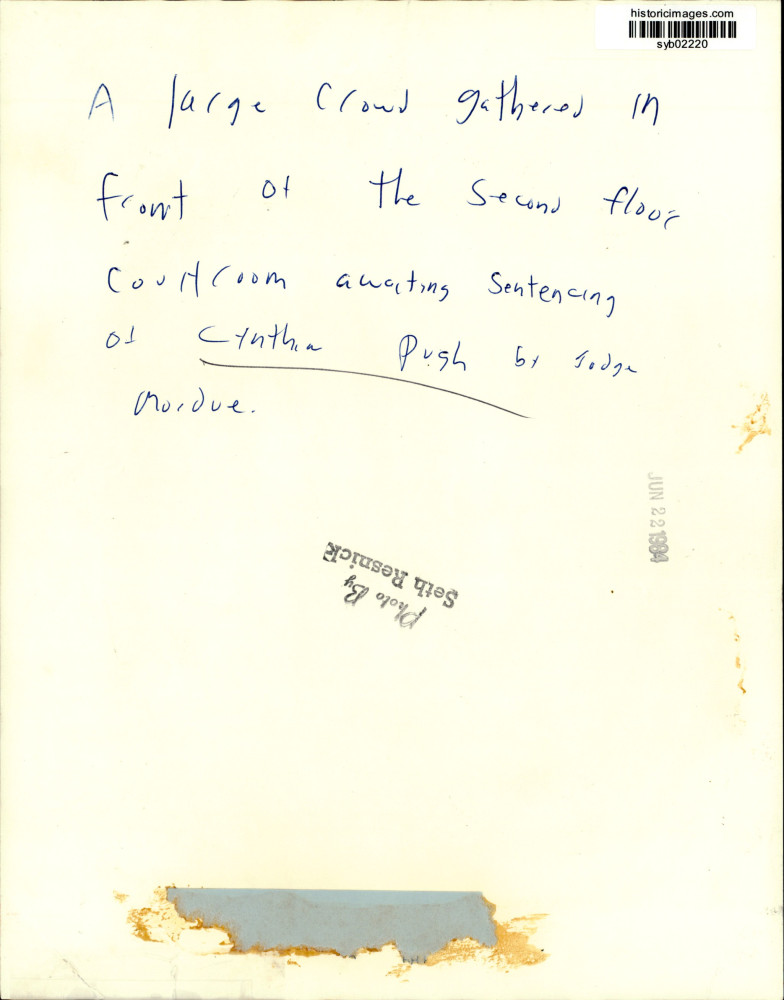 historicimages.com
syb02220
A large Crowd gathered in
front of the Second floor
Courtroom awaiting Sentencing
of Cynthia Pugh by Judge
Mordue.
JUN 22 1984
Photo By
Seth Resnick